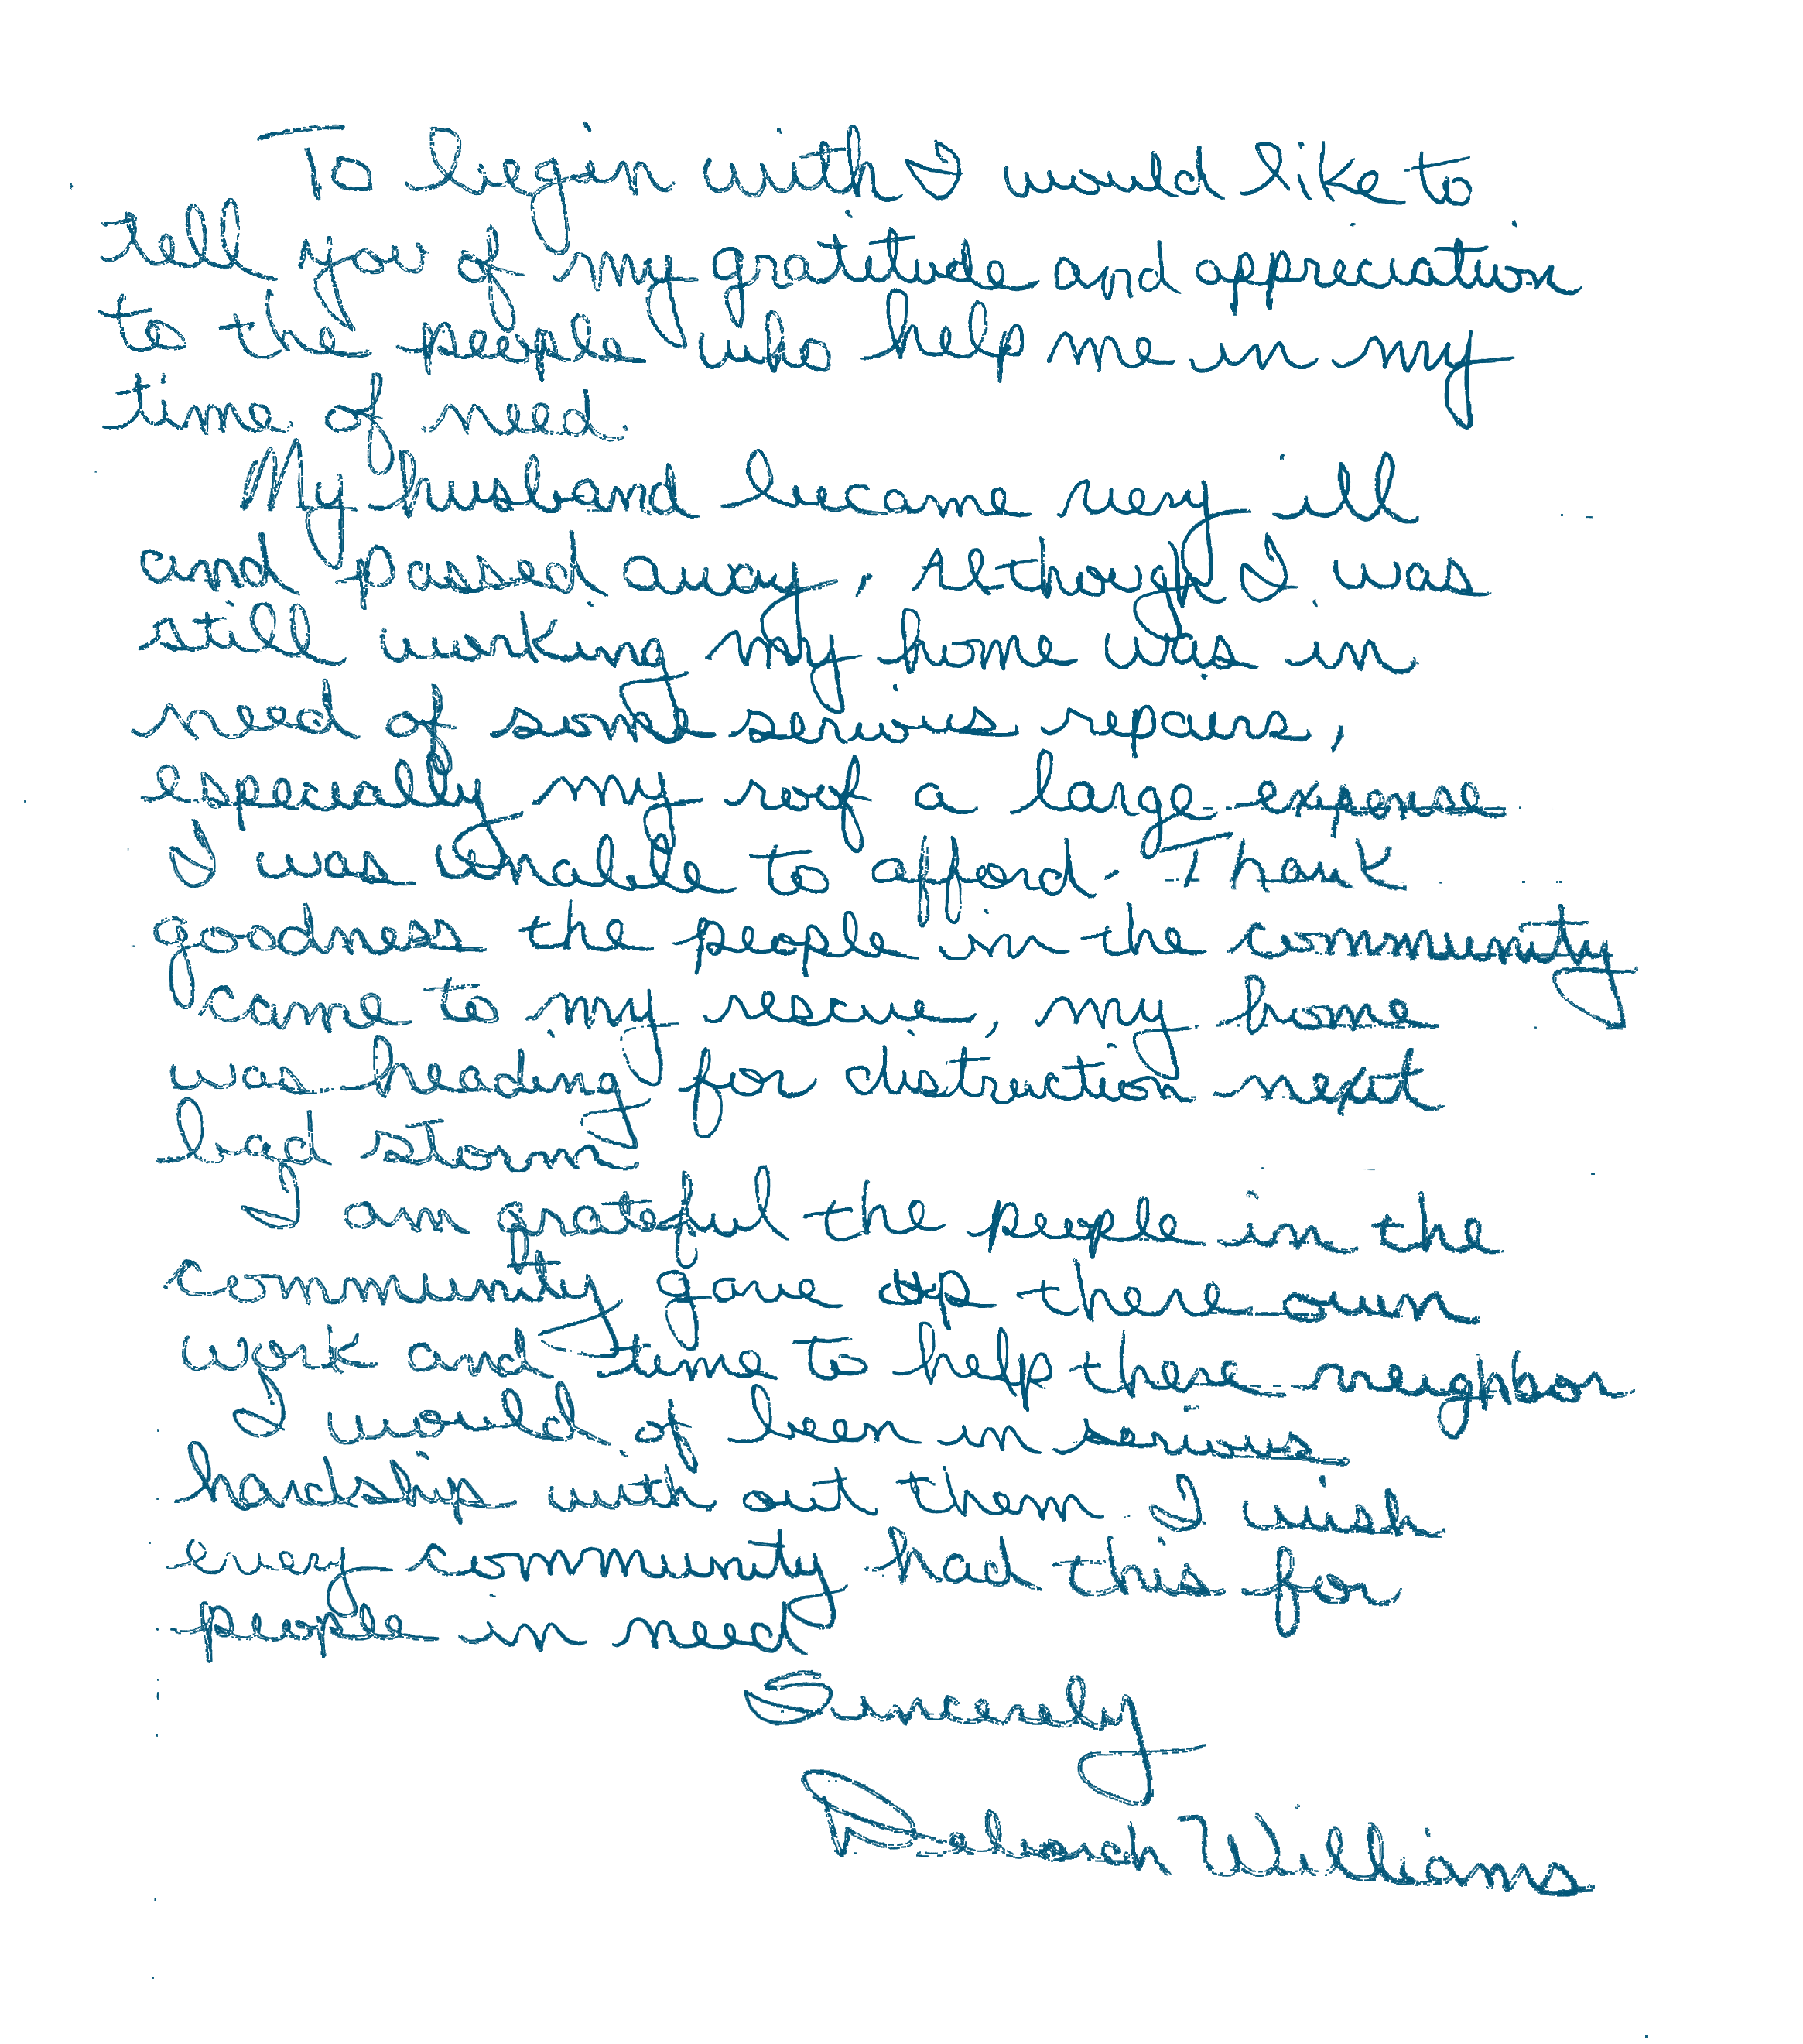 To begin with I would like to
tell you of my gratitude and appreciation
to the people who help me in my
time of need.
My husband became very ill
and passed away, Although I was
still working my home was in
need of some serious repairs,
especially my roof a large expense
I was unable to afford. Thank
goodness the people in the community
came to my rescue, my home
was heading for distruction next
bad storm
I am grateful the people in the
community gave up there own
work and time to help there neighbor
I would of been in serious
hardship with out them I wish
every community had this for
people in need
Sincerely
Deborah Williams